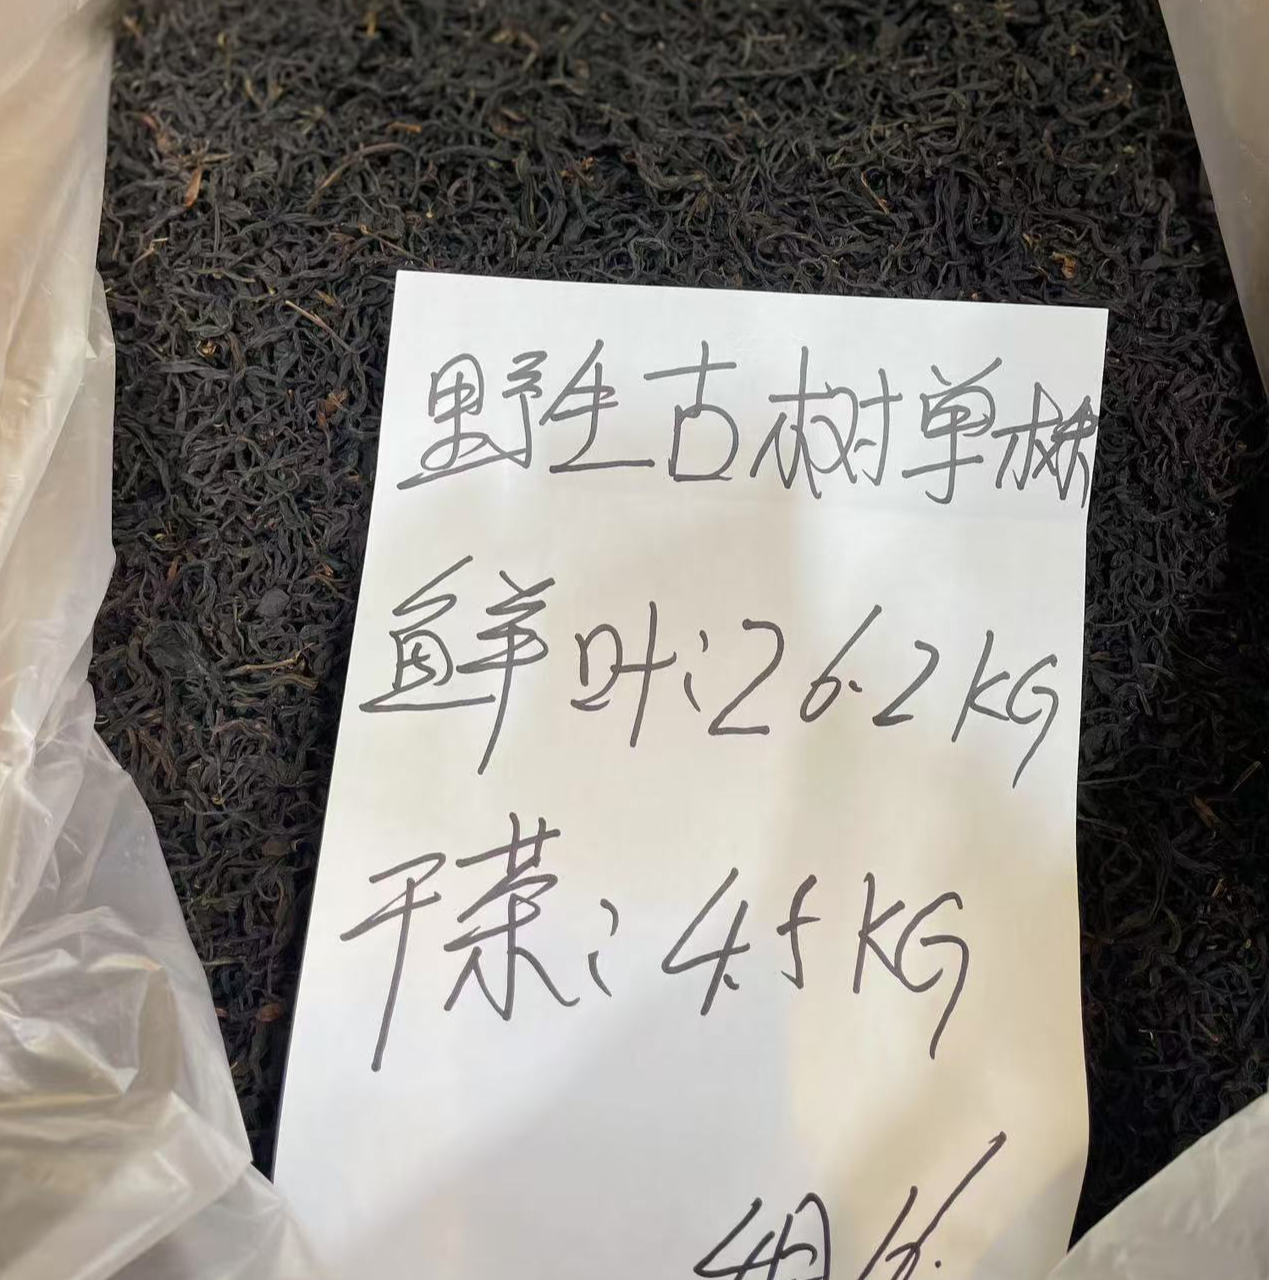 野生古树单株
鲜叶:26.2KG
干茶:4.5KG